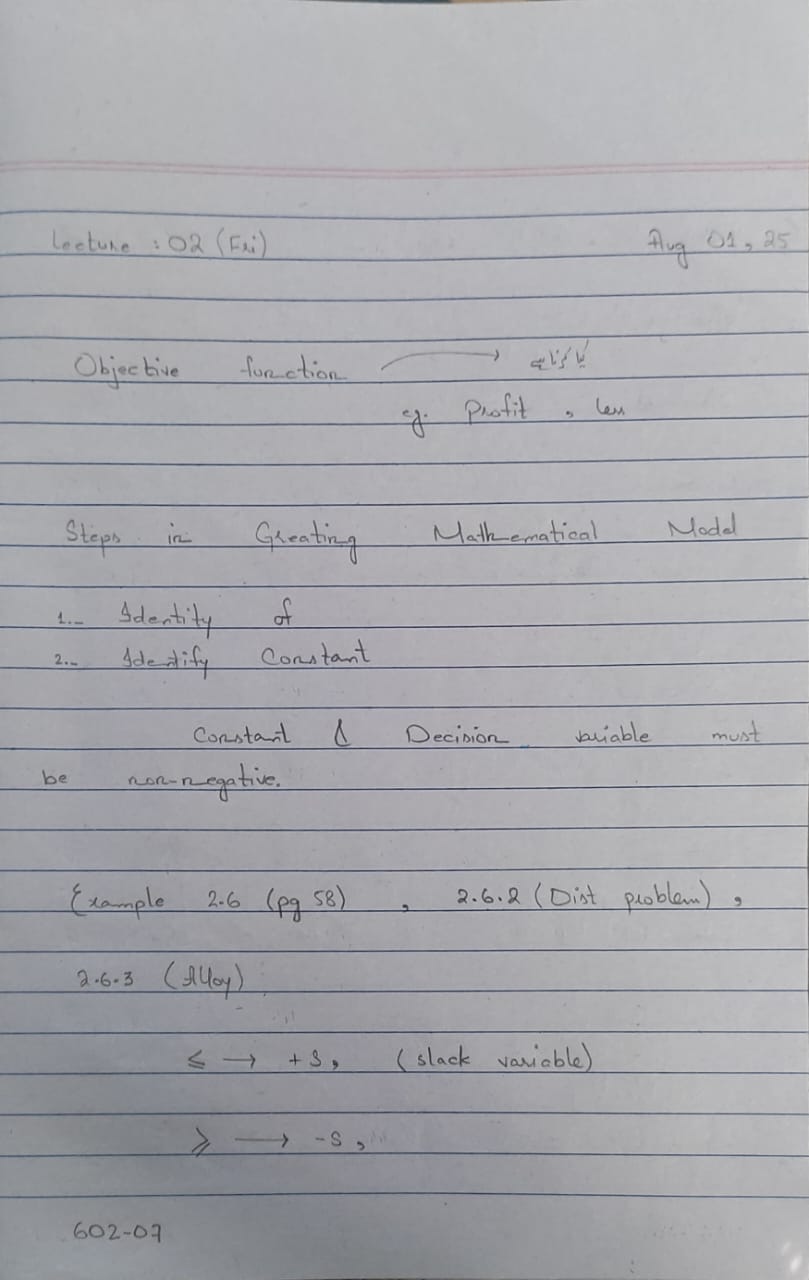 Lecture : 02 (Fri) Aug 01, 25
Objective function → کیا کرنا ہے
eg. Profit , less
Steps in Creating Mathematical Model
1.- Identity of
2.- Identify Constant
Constant & Decision variable must
be non-negative.
Example 2.6 (pg 58) , 2.6.2 (Dist problem) ,
2.6.3 (Alloy)
≤ → +S, (slack variable)
≥ → -S,
602-07